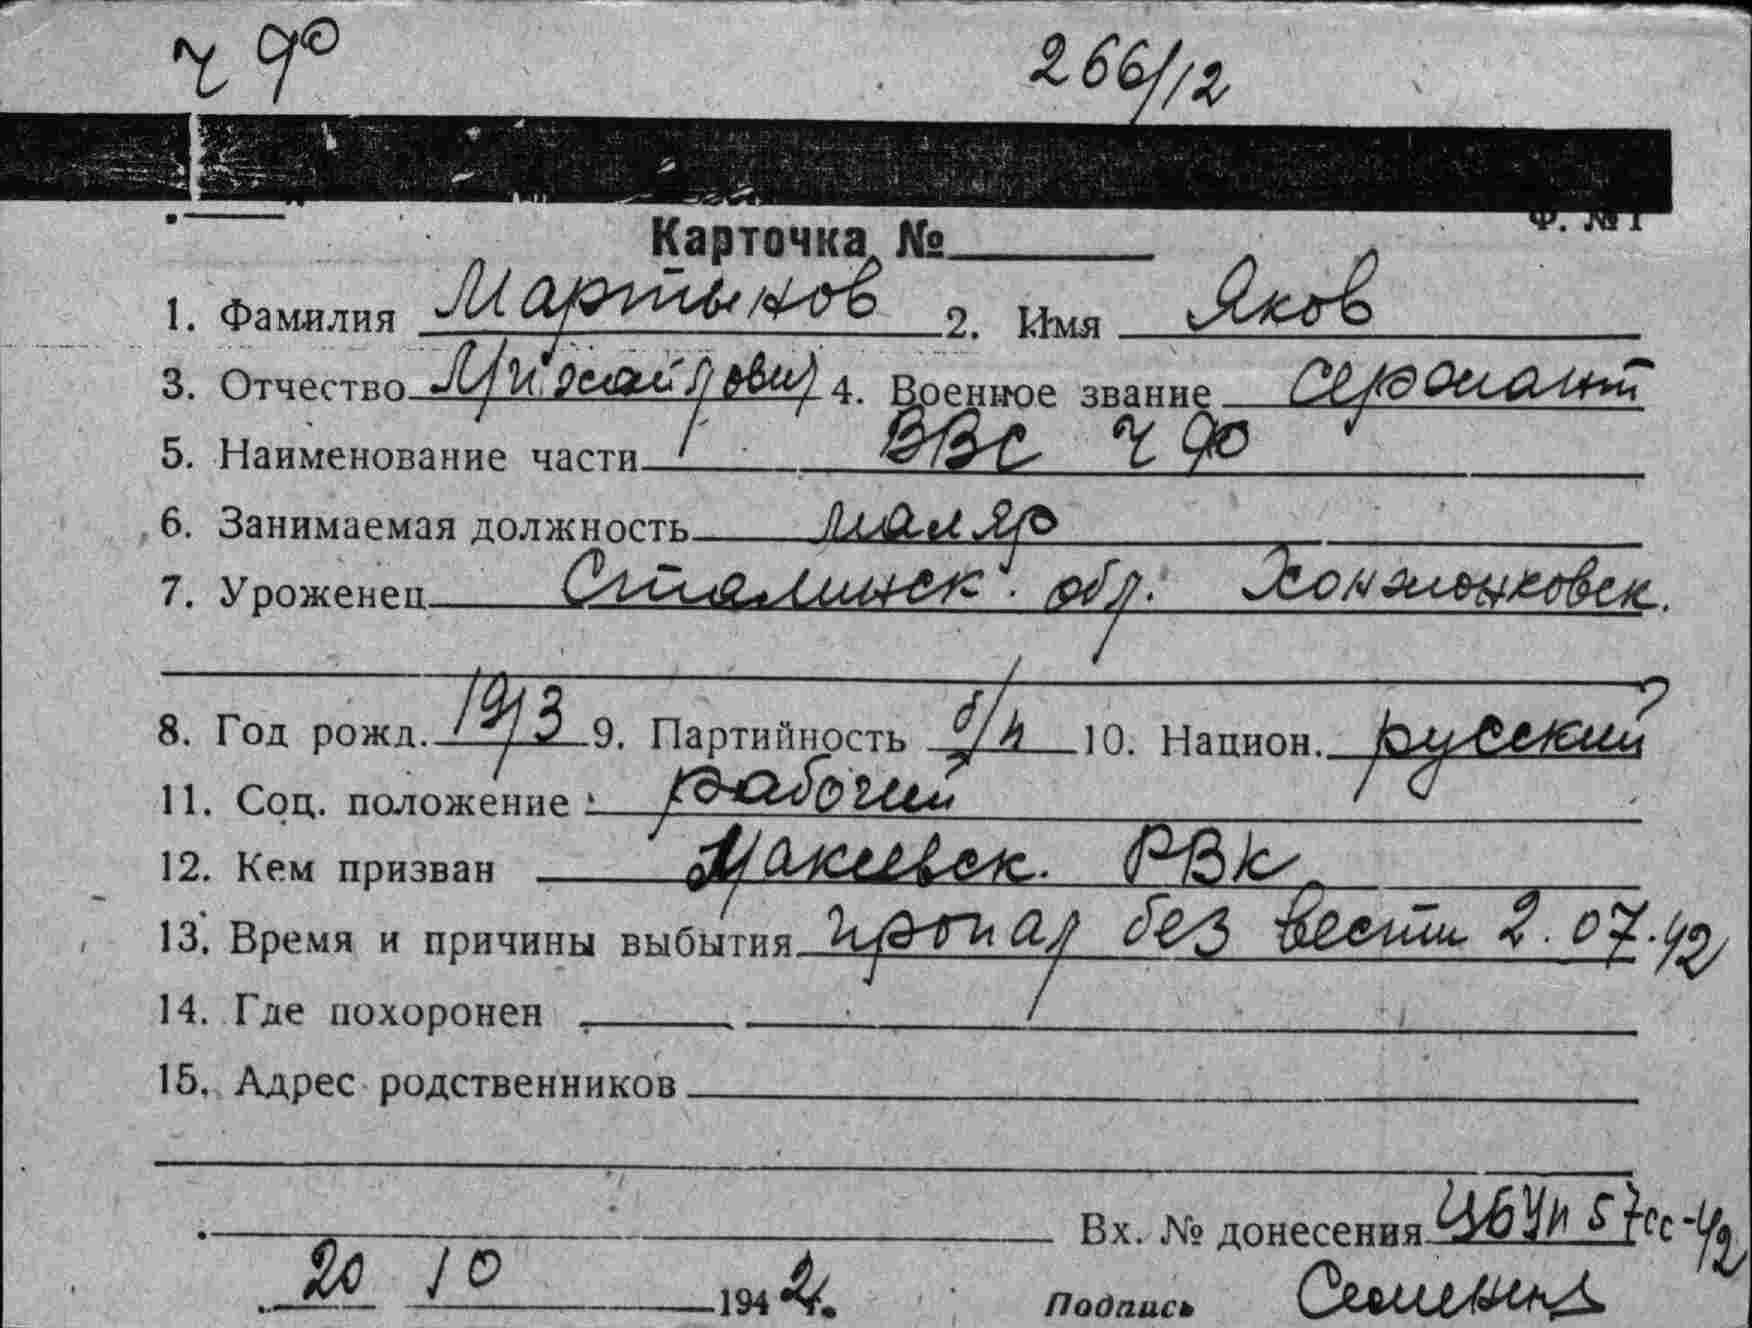 ч ф
266/12
Ф. № 1
Карточка №
1. Фамилия Мартынов 2. Имя Яков
3. Отчество Михайлович 4. Военное звание сержант
5. Наименование части ВВС ЧФ
6. Занимаемая должность маляр
7. Уроженец Сталинск. обл. Ханжонковск.
8. Год рожд. 1913 9. Партийность б/п 10. Национ. русский
11. Соц. положение рабочий
12. Кем призван Макеевск. РВК
13. Время и причины выбытия пропал без вести 2.07.42
14. Где похоронен
15. Адрес родственников
Вх. № донесения 57сс-42
20 10 1942.
Подпись